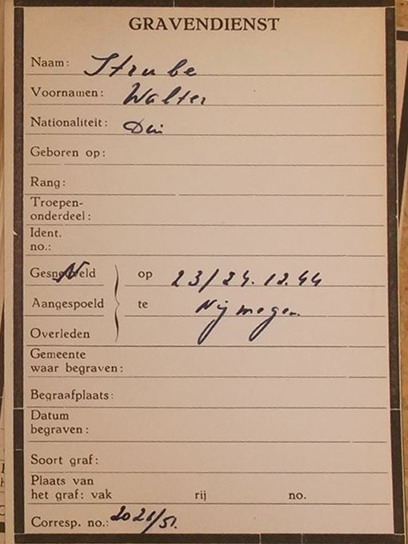 GRAVENDIENST
Naam: Strube
Voornamen: Walter
Nationaliteit: Dui
Geboren op:
Rang:
Troepen-
onderdeel:
Ident.
no.:
Gesneuveld } op 23/24.12.44
Aangespoeld } te Nijmegen
Overleden
Gemeente
waar begraven:
Begraafplaats:
Datum
begraven:
Soort graf:
Plaats van
het graf: vak rij no.
Corresp. no.: 2021/51.